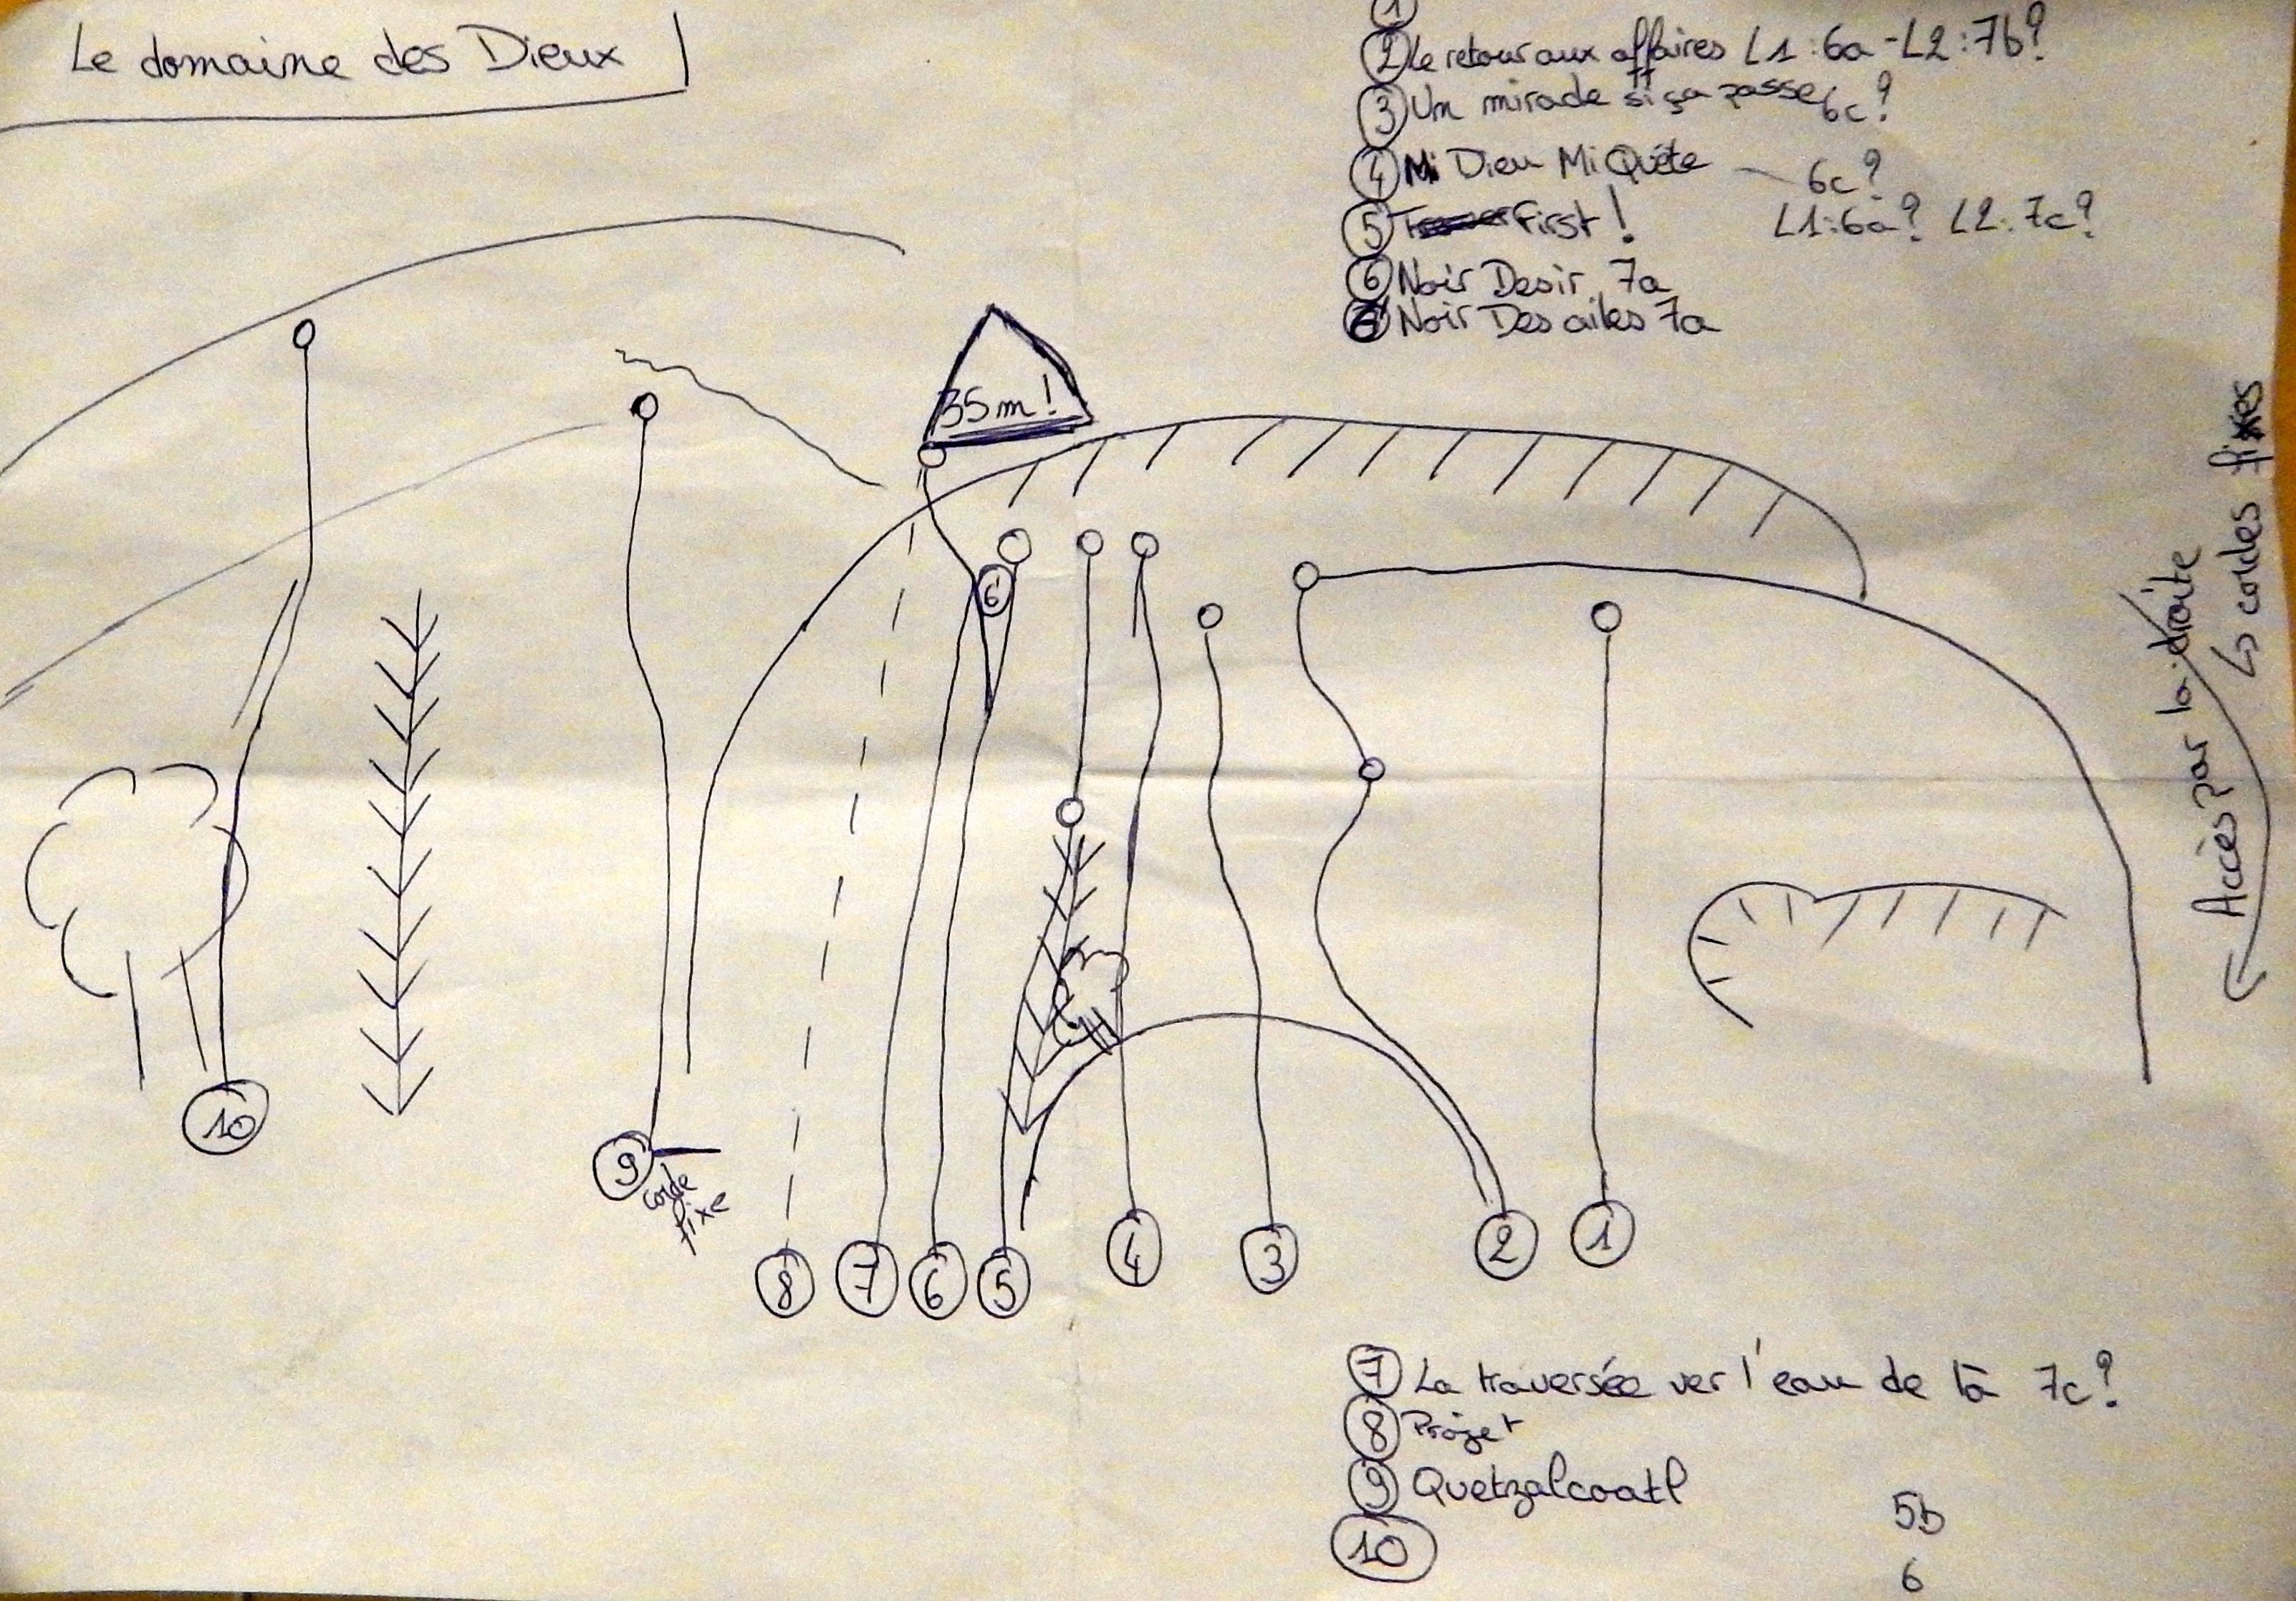 Le domaine des Dieux
1
2 Le retour aux affaires L1:6a-L2:7b?
3 Un miracle si ça passe 6c?
4 Mi Dieu Mi Quête - 6c?
5 First! L1:6a? L2:7c?
6 Noir Desir 7a
6 Noir Des ailes 7a
35m!
6
Accès par la droite
↳ cordes fixes
10
9
corde
fixe
8 7 6 5 4 3 2 1
7 La traversée ver l'eau de là 7c?
8 Projet
9 Quetzalcoatl
5b
10
6